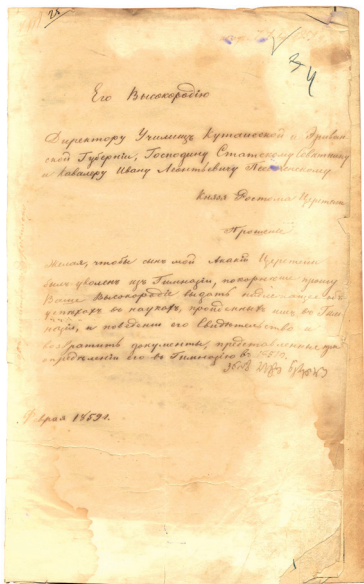 34
Его Высокородію
Директору Училищъ Кутаисской и Эриван-
ской Губерніи, Господину Статскому Совѣтнику
и Кавалеру Ивану Леонтьевичу
Князя Ростома Церетели
Прошеніе
Желая, чтобы сынъ мой Акакій Церетели
былъ уволенъ изъ Гимназіи, покорнѣйше прошу
Ваше Высокородіе выдать объ
успѣхахъ въ наукахъ, пройденныхъ имъ въ Гим-
назіи, и поведеніи его Свидѣтельство и
возвратить документы, представленные при
опредѣленіи его въ Гимназію
1859 г.